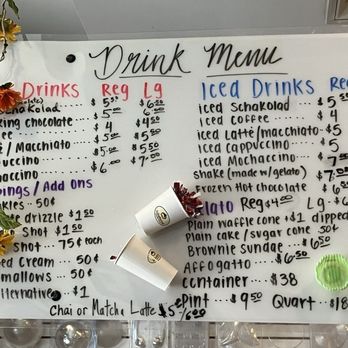 Drink Menu
Drinks Reg Lg
Schakolad $5.50 $6.50
king chocolate $5.00 $6.00
ee $4 $4.50
é / Macchiato $5.00 $5.50
puccino $5.00 $5.50
haccino $6.00 $7.00
pings / Add ons
nkles 50¢
e drizzle $1.50
Shot $1.50
Shot 75¢ each
ed Cream 50¢
hmallows 50¢
alternative $1
Chai or Matcha Latte $5
Iced Drinks Re
iced Schakolad $5
iced coffee $4
iced Latte/macchiato $5
iced cappuccino $5
iced Mochaccino $7
shake (made w/gelato) $7
frozen Hot chocolate $6.50
elato Reg $4.00 Lg $6
Plain waffle cone +$1 dipped
Plain cake/sugar cone 50¢
Brownie sundae $6.50
Affogatto $6.50
container $38
Pint $9.50 Quart $18